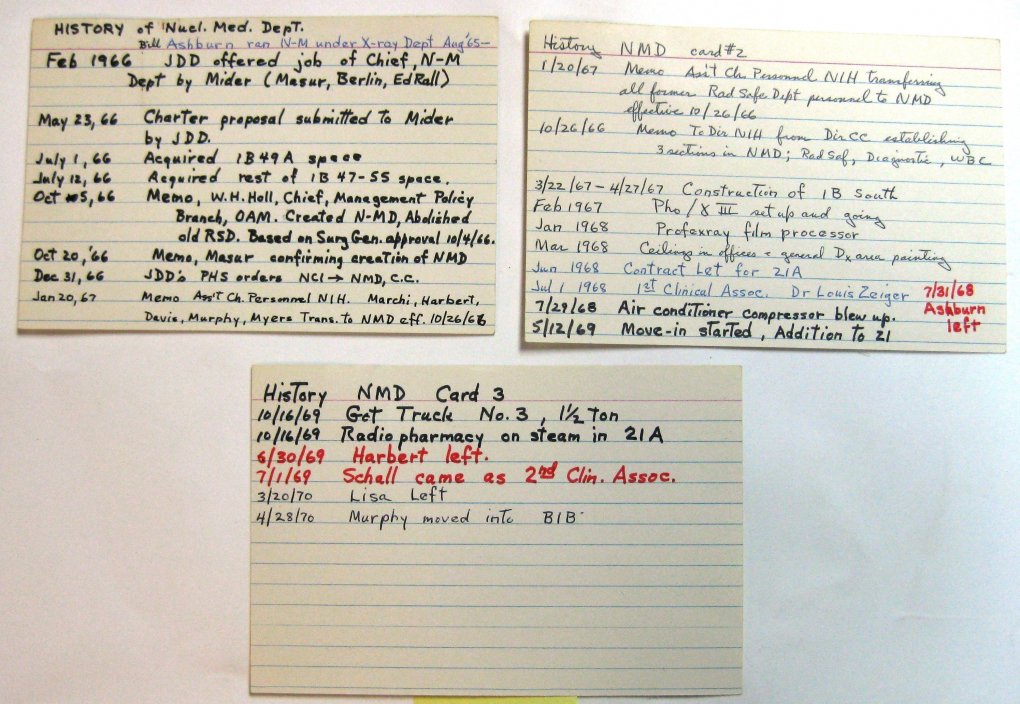 HISTORY of Nucl. Med. Dept.
Bill Ashburn ran N-M under X-ray Dept Aug '65—
Feb 1966 JDD offered job of Chief, N-M
Dept by Mider (Masur, Berlin, Ed Rall)
May 23, 66 Charter proposal submitted to Mider
by JDD.
July 1, 66 Acquired 1B49A space
July 12, 66 Acquired rest of 1B 47-55 space.
Oct 5, 66 Memo, W.H. Holl, Chief, Management Policy
Branch, OAM. Created N-MD, Abolished
old RSD. Based on Surg Gen. approval 10/4/66.
Oct 20, '66 Memo, Masur confirming creation of NMD
Dec 31, 66 JDD's PHS orders NCI → NMD, C.C.
Jan 20, 67 Memo Ass't Ch. Personnel NIH. Marchi, Harbert,
Davis, Murphy, Myers Trans. to NMD eff. 10/26/66
History NMD card #2
1/20/67 Memo Ass't Ch. Personnel NIH transferring
all former Rad Safe Dept personnel to NMD
effective 10/26/66
10/26/66 Memo To Dir NIH from Dir CC establishing
3 sections in NMD; Rad Saf, Diagnostic, WBC
3/22/67 – 4/27/67 Construction of 1B South
Feb 1967 Pho/γ III set up and going
Jan 1968 Profexray film processor
Mar 1968 Ceilings in offices & general Dx area painting
Jun 1968 Contract Let for 21A
Jul 1 1968 1st Clinical Assoc. Dr Louis Zeiger 7/31/68
7/29/68 Air conditioner compressor blew up. Ashburn
5/12/69 Move-in started, Addition to 21 left
History NMD Card 3
10/16/69 Get Truck No. 3, 1½ ton
10/16/69 Radiopharmacy on steam in 21A
6/30/69 Harbert left.
7/1/69 Schall came as 2nd Clin. Assoc.
3/20/70 Lisa Left
4/28/70 Murphy moved into B1B